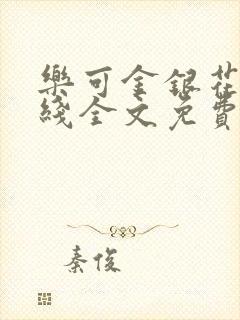 樂可金銀花
綫全文免費
秦俊